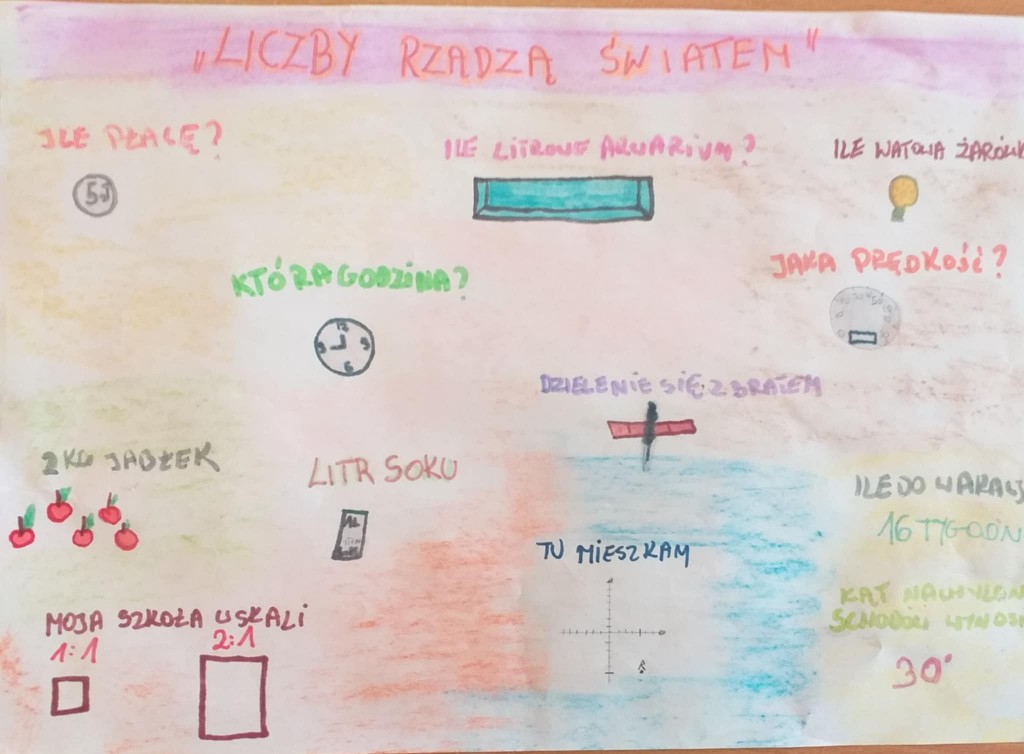 „LICZBY RZĄDZĄ ŚWIATEM"
ILE PŁACĘ?
5
ILE LITROWE AKWARIUM?
ILE WATOWA ŻARÓWK
KTÓRA GODZINA?
12
3
6
9
JAKA PRĘDKOŚĆ?
DZIELENIE SIĘ Z BRATEM
2KG JABŁEK
LITR SOKU
1L
ILE DO WAKACJ
16 TYGODN
TU MIESZKAM
KĄT NACHYLEN
SCHODÓW WYNOSI
30°
MOJA SZKOŁA W SKALI
1:1
2:1